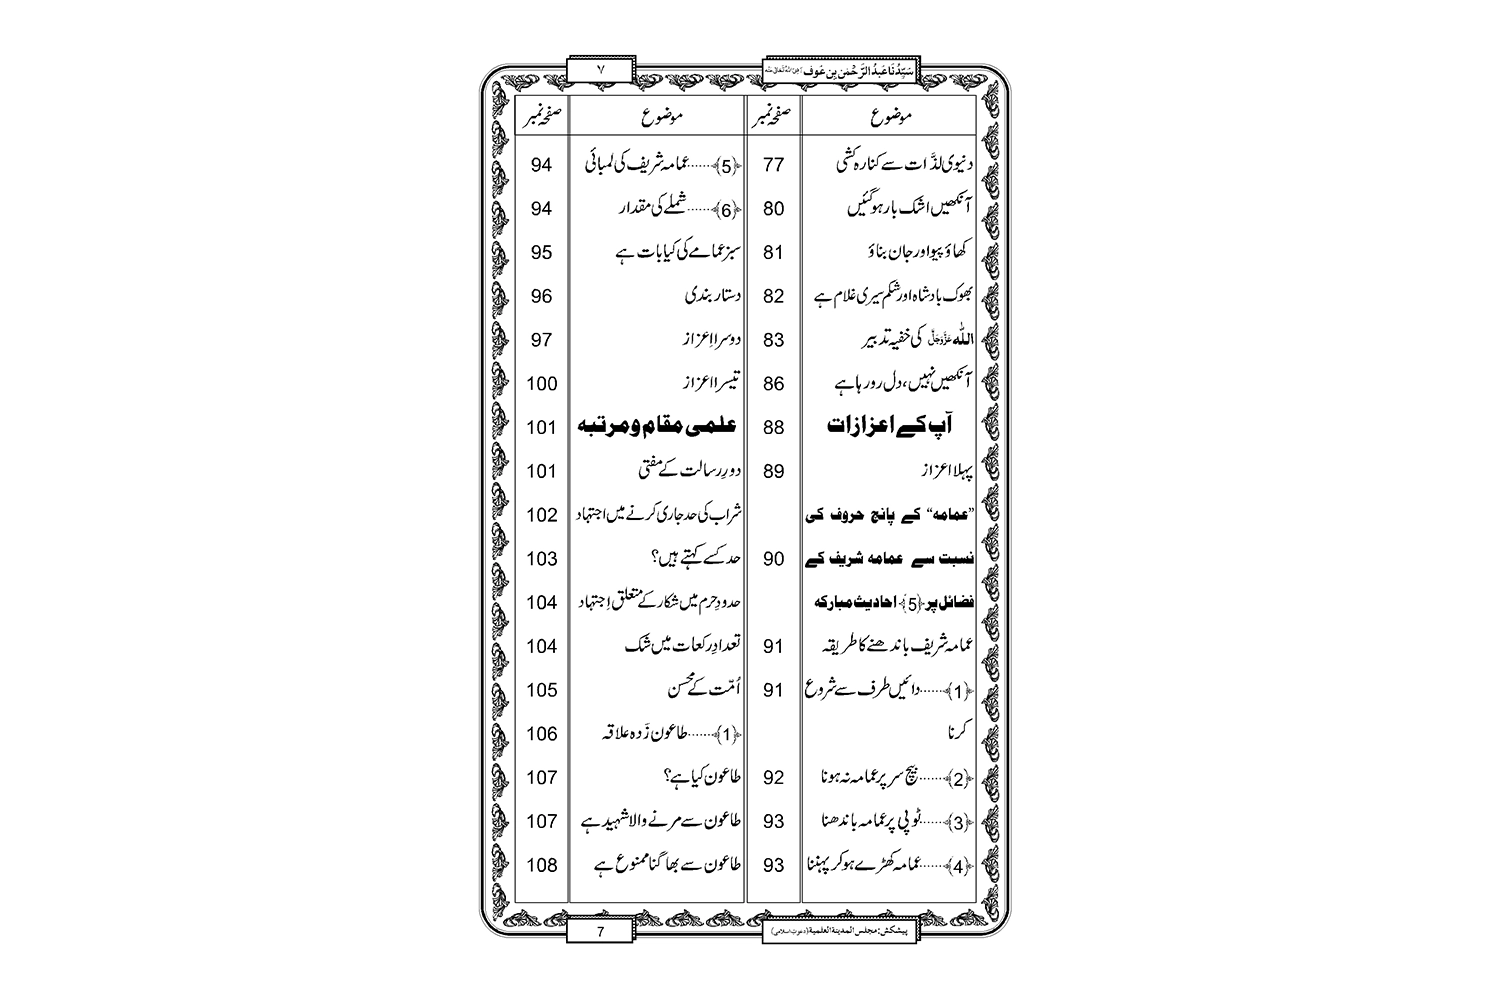 سَیِّدُنَا عَبدُ الرَّحْمٰن بِن عَوف رَضِیَ اللہُ تَعَالٰی عَنْہ
۷
موضوع صفحہ نمبر
دنیوی لذَّات سے کنارہ کشی 77
آنکھیں اشک بار ہوگئیں 80
کھاؤ پیو اور جان بناؤ 81
بھوک بادشاہ اور شکم سیری غلام ہے 82
اللہ عَزَّوَجَلَّ کی خفیہ تدبیر 83
آنکھیں نہیں، دل رورہا ہے 86
آپ کے اعزازات 88
پہلا اعزاز 89
”عمامہ“ کے پانچ حروف کی
نسبت سے عمامہ شریف کے 90
فضائل پر ﴿5﴾ احادیث مبارکہ
عمامہ شریف باندھنے کا طریقہ 91
﴿1﴾......دائیں طرف سے شروع 91
کرنا
﴿2﴾......بیچ سر پر عمامہ نہ ہونا 92
﴿3﴾......ٹوپی پر عمامہ باندھنا 93
﴿4﴾......عمامہ کھڑے ہوکر پہننا 93
موضوع صفحہ نمبر
﴿5﴾......عمامہ شریف کی لمبائی 94
﴿6﴾......شملے کی مقدار 94
سبز عمامے کی کیا بات ہے 95
دستار بندی 96
دوسرا اِعزاز 97
تیسرا اعزاز 100
علمی مقام و مرتبہ 101
دورِ رسالت کے مفتی 101
شراب کی حد جاری کرنے میں اجتہاد 102
حد کسے کہتے ہیں؟ 103
حدودِ حرم میں شکار کے متعلق اِجتہاد 104
تعدادِ رکعات میں شک 104
اُمّت کے محسن 105
﴿1﴾......طاعون زَدہ علاقہ 106
طاعون کیا ہے؟ 107
طاعون سے مرنے والا شہید ہے 107
طاعون سے بھاگنا ممنوع ہے 108
پیشکش: مجلس المدینۃ العلمیۃ (دعوتِ اسلامی)
7